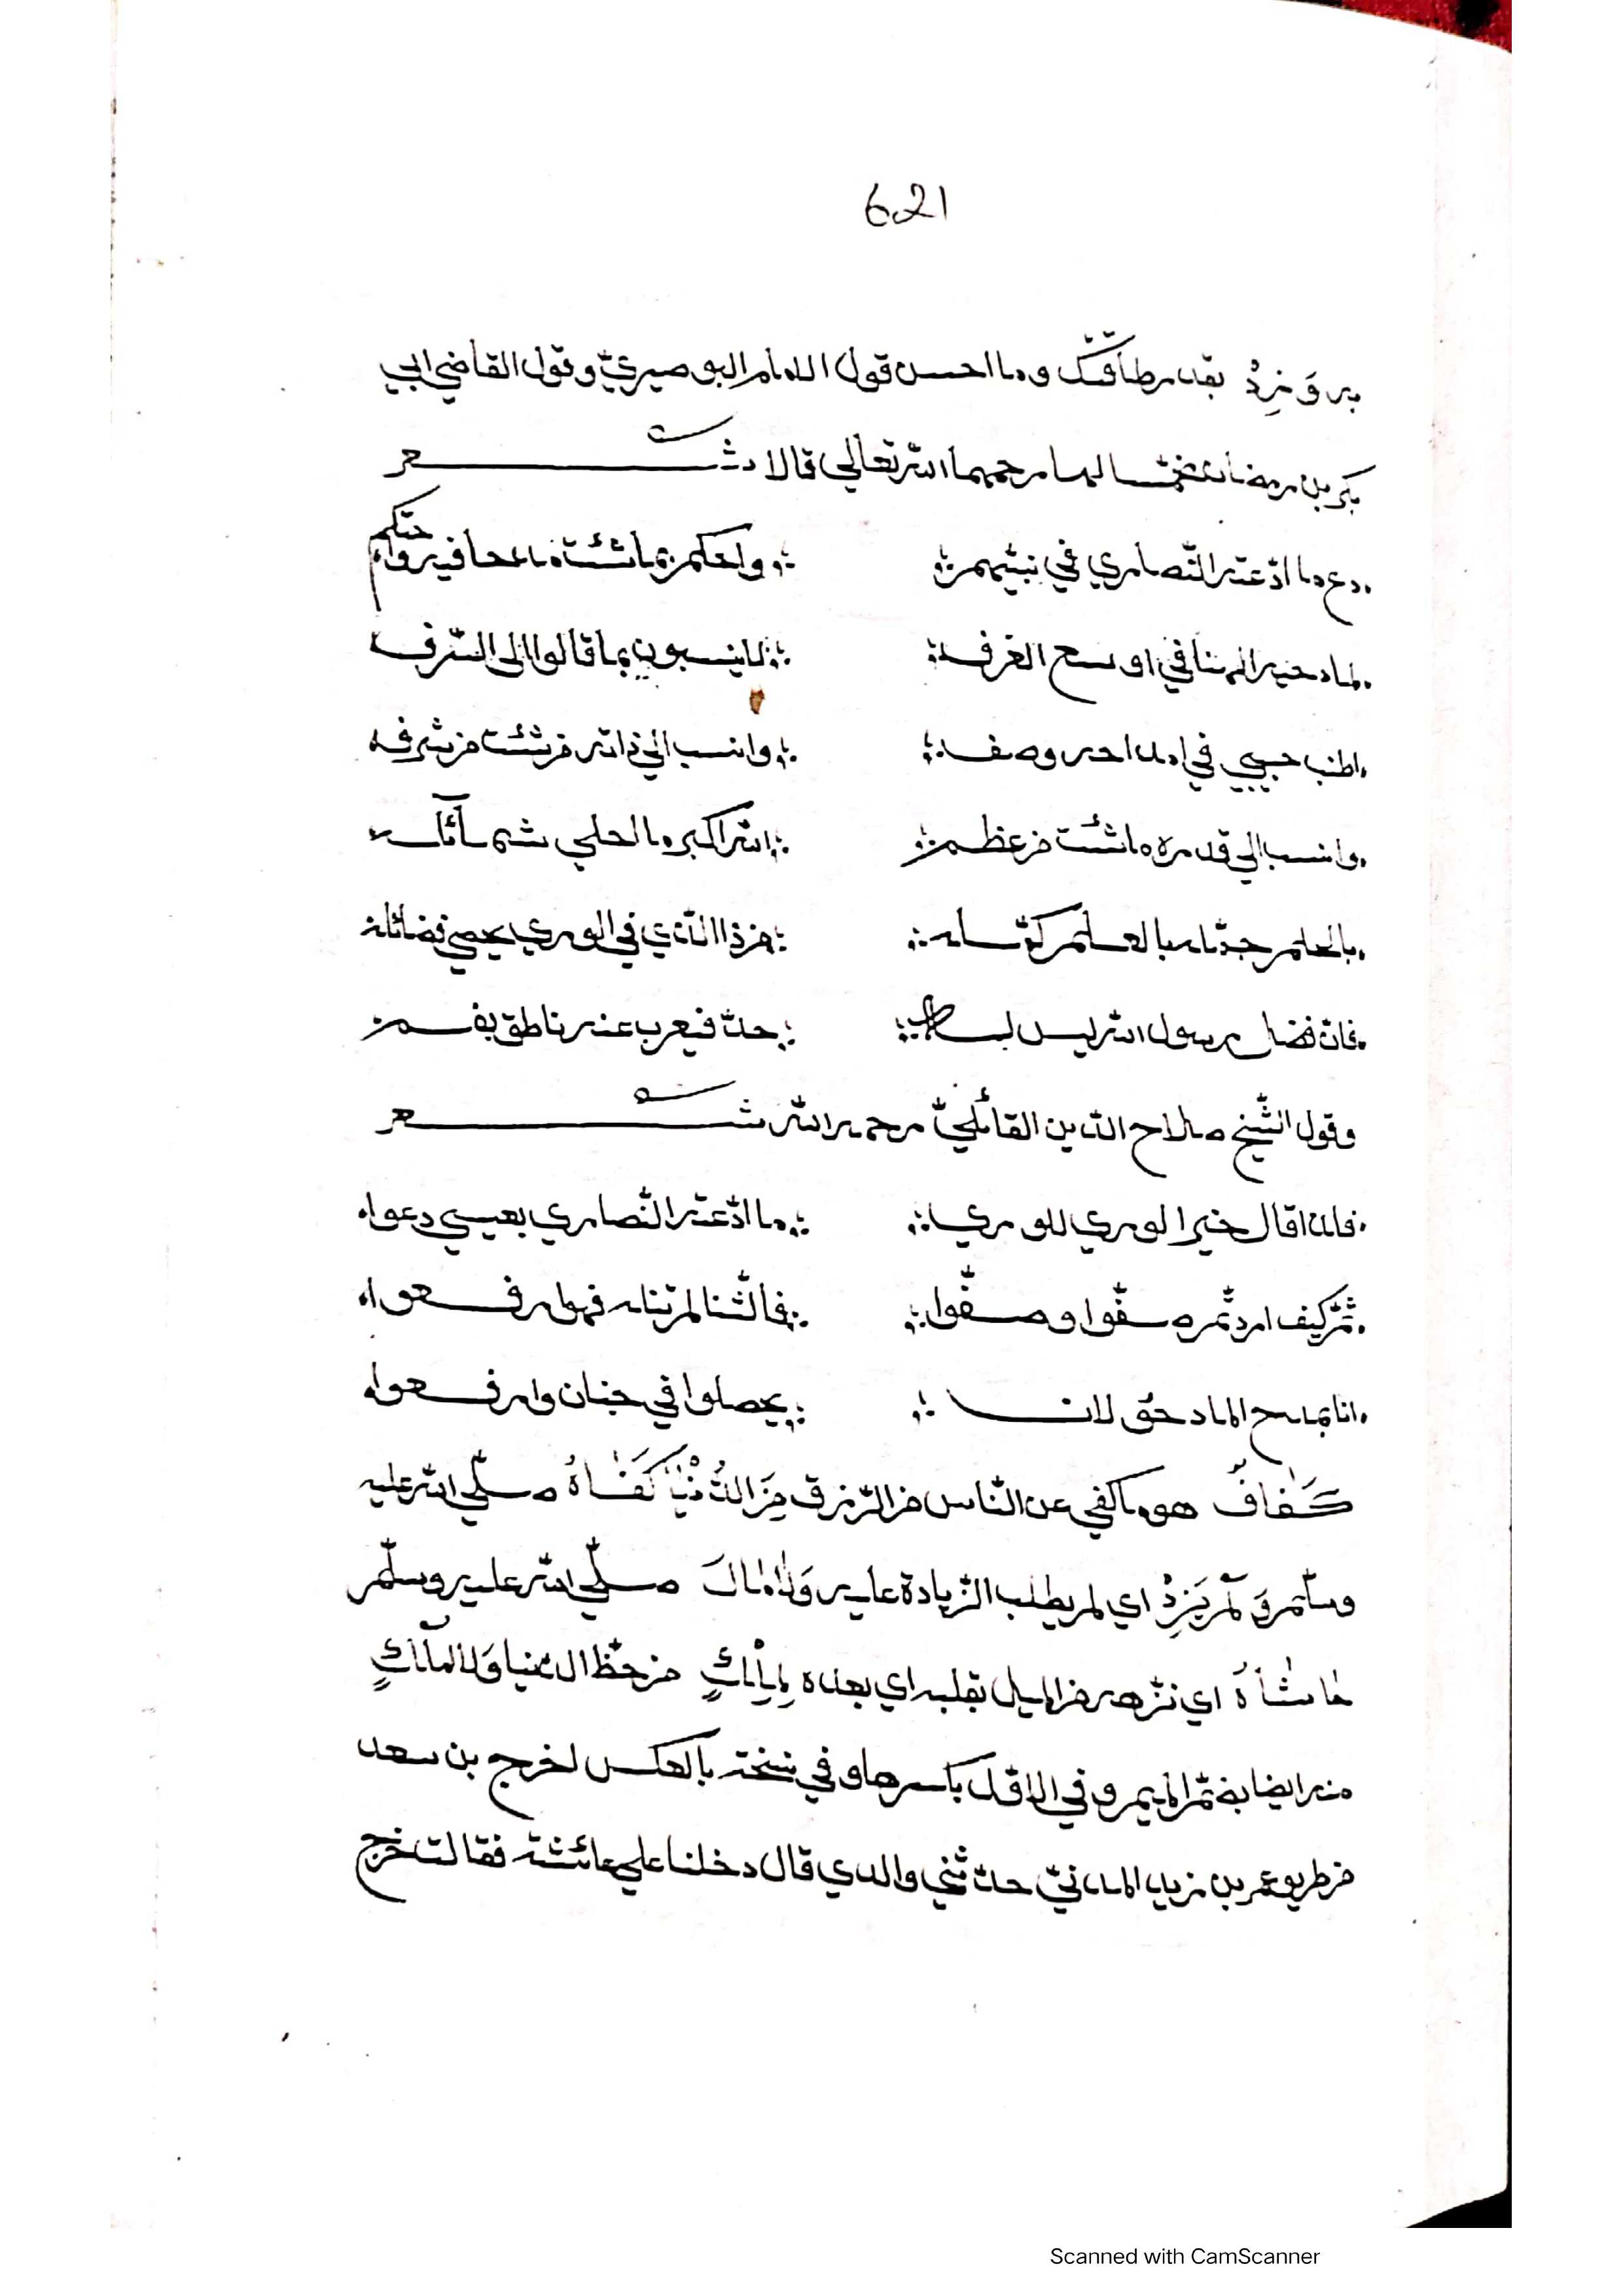 621
به وَزِدْ بقدر طاقتك وما احسن قول الامام البوصيريّ وقول القاضي ابي
بكر بن رمضان مخمّسا لهما رحمهما الله تعالي قالا شعر
دع ما ادّعته النّصاري في نبيّهم واحكم بما شئت مدحا فيه واحتكم
لمادحيه الهنا في اوسع الغرف لا ينسبون بما قالوا الي السّرف
اطنب حبيبي في امداحه وصف وانسب الي ذاته من شئت من شرف
وانسب الي قدره ما شئت من عظم الله اكبر ما احلي شمآئله
بالحلم جمّله بالعلم كمّله من ذا الّذي في الوري يحصي فضائله
فان فضل رسول الله ليس له حدّ فيعرب عنه ناطق بفم
وقول الشّيخ صلاح الدّين القائليّ رحمه الله شعر
فلذا قال خير الوري للوري ما ادّعته النّصاري بعيسي دعوا
ثمّ كيف اردتم صفّوا وصفّوا فالثّنا لم تنله فمهما رفعوا
انا بمدح المادحون لان يحصلوا في جنان وارفعوا
كَفَافٌ هو ما كفي عن النّاس من الرّزق مِنَ الدُّنْيَا كَفَاهُ صلّي الله عليه
وسلّم وَلَمْ يَزِدْ اي لم يطلب الزّيادة عليه وَلَا مَالَ صلّي الله عليه وسلّم
حَاشَاهُ اي نزّهه من الميل بقلبه اي بعده لِمِلْكٍ من حظّ الدنيا وَلَا لمُلْكٍ
منه ايضا بضمّ الميم وفي الاوّل بكسرها وفي نسخة بالعكس اخرج بن سعد
من طريق عمر بن زيد المدنيّ حدّثني والدي قال دخلنا علي عائشة فقالت خرج
Scanned with CamScanner